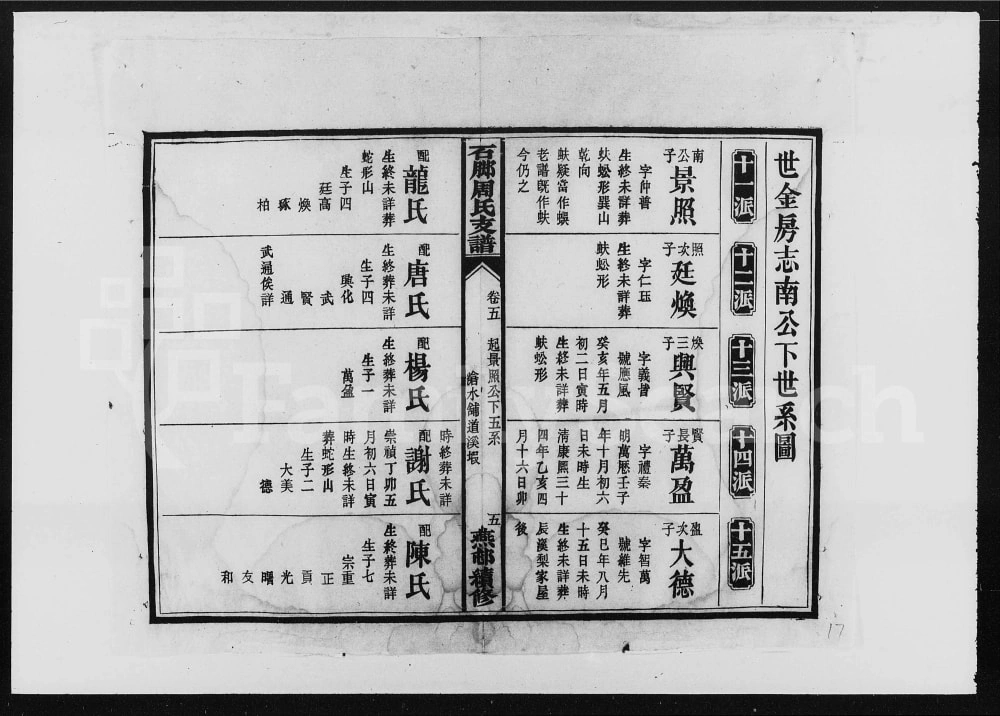 世金房志南公下世系圖
十一派
十二派
十三派
十四派
十五派
南公子
景照
字仲普
生終未詳葬
蚨蚣形巽山
乾向
蚨疑當作蜈
老譜旣作蚨
今仍之
照次子
廷煥
字仁珏
生終未詳葬
蚨蚣形
煥三子
興賢
字義曾
號應風
癸亥年五月
初二日寅時
生終未詳葬
蚨蚣形
賢長子
萬盈
字禮泰
明萬厯壬子
年十月初六
日未時生
淸康熙三十
四年乙亥四
月十六日卯
盈次子
大德
字智萬
號維先
癸巳年八月
十五日未時
生終未詳葬
辰溪梨家屋
後
石腳周氏支譜
卷五
起景照公下五系
滄水舖道溪塅
五
燕邸續修
配
龍氏
生終未詳葬
蛇形山
生子四
廷高
煥
琢
柏
配
唐氏
生終葬未詳
生子四
興化
武
賢
通
武通俟詳
配
楊氏
生終葬未詳
生子一
萬盈
時終葬未詳
配
謝氏
崇禎丁卯五
月初六日寅
時生終未詳
葬蛇形山
生子二
大美
德
配
陳氏
生終葬未詳
生子七
宗重
正
貢
光
曙
友
和
17
FamilySearch